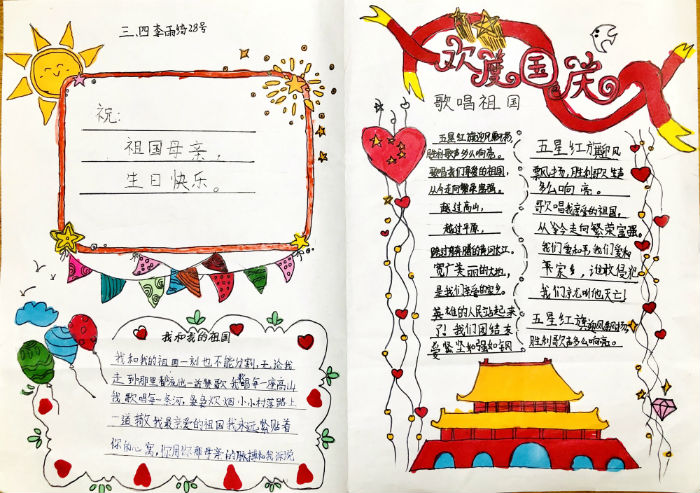 三.四 李雨绮28号
祝:
祖国母亲,
生日快乐。
我和我的祖国
我和我的祖国一刻也不能分割,无论我
走到那里都流出一首赞歌我歌每一座高山
我歌唱每一条河,袅袅炊烟小小村落路上
一道辙我最亲爱的祖国我永远紧贴着
你的心窝,你用你那母亲的脉搏和我诉说
欢度国庆
歌唱祖国
五星红旗迎风飘扬,
胜利歌声多么响亮。
歌唱我们亲爱的祖国,
从今走向繁荣富强。
越过高山,
越过平原,
跨过奔腾的黄河长江。
宽广美丽的土地,
是我们亲爱的家乡。
英雄的人民站起来
了!我们团结友
爱坚如钢
五星红旗迎风
飘扬,胜利歌声
多么响亮。
歌唱我亲爱的祖国,
从今走向繁荣富强。
我们爱和平,我们爱
家乡,谁敢侵犯
我们就叫他灭亡!
五星红旗迎风飘扬
胜利歌声多么响亮。